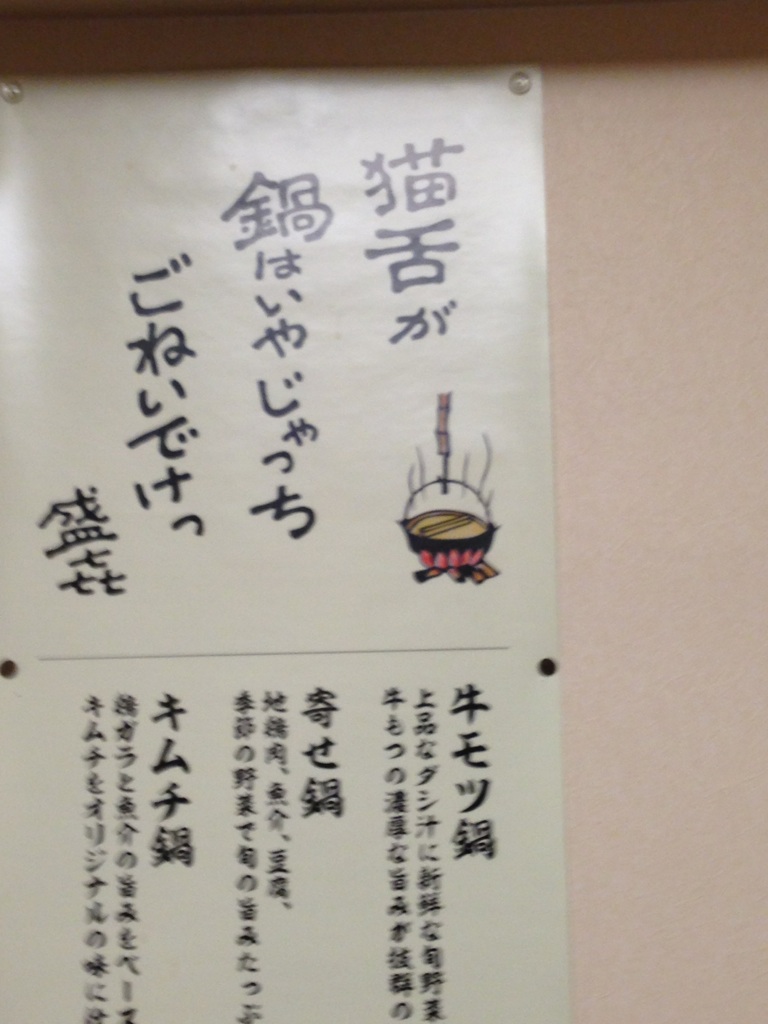 猫舌が
鍋はいやじゃっち
ごねいでけっ
盛㐂
牛モツ鍋
上品なダシ汁に新鮮な旬野菜
牛もつの濃厚な旨みが抜群の
寄せ鍋
地鶏肉、魚介、豆腐、
季節の野菜で旬の旨みたっぷ
キムチ鍋
鶏ガラと魚介の旨みをベース
キムチをオリジナルの味に